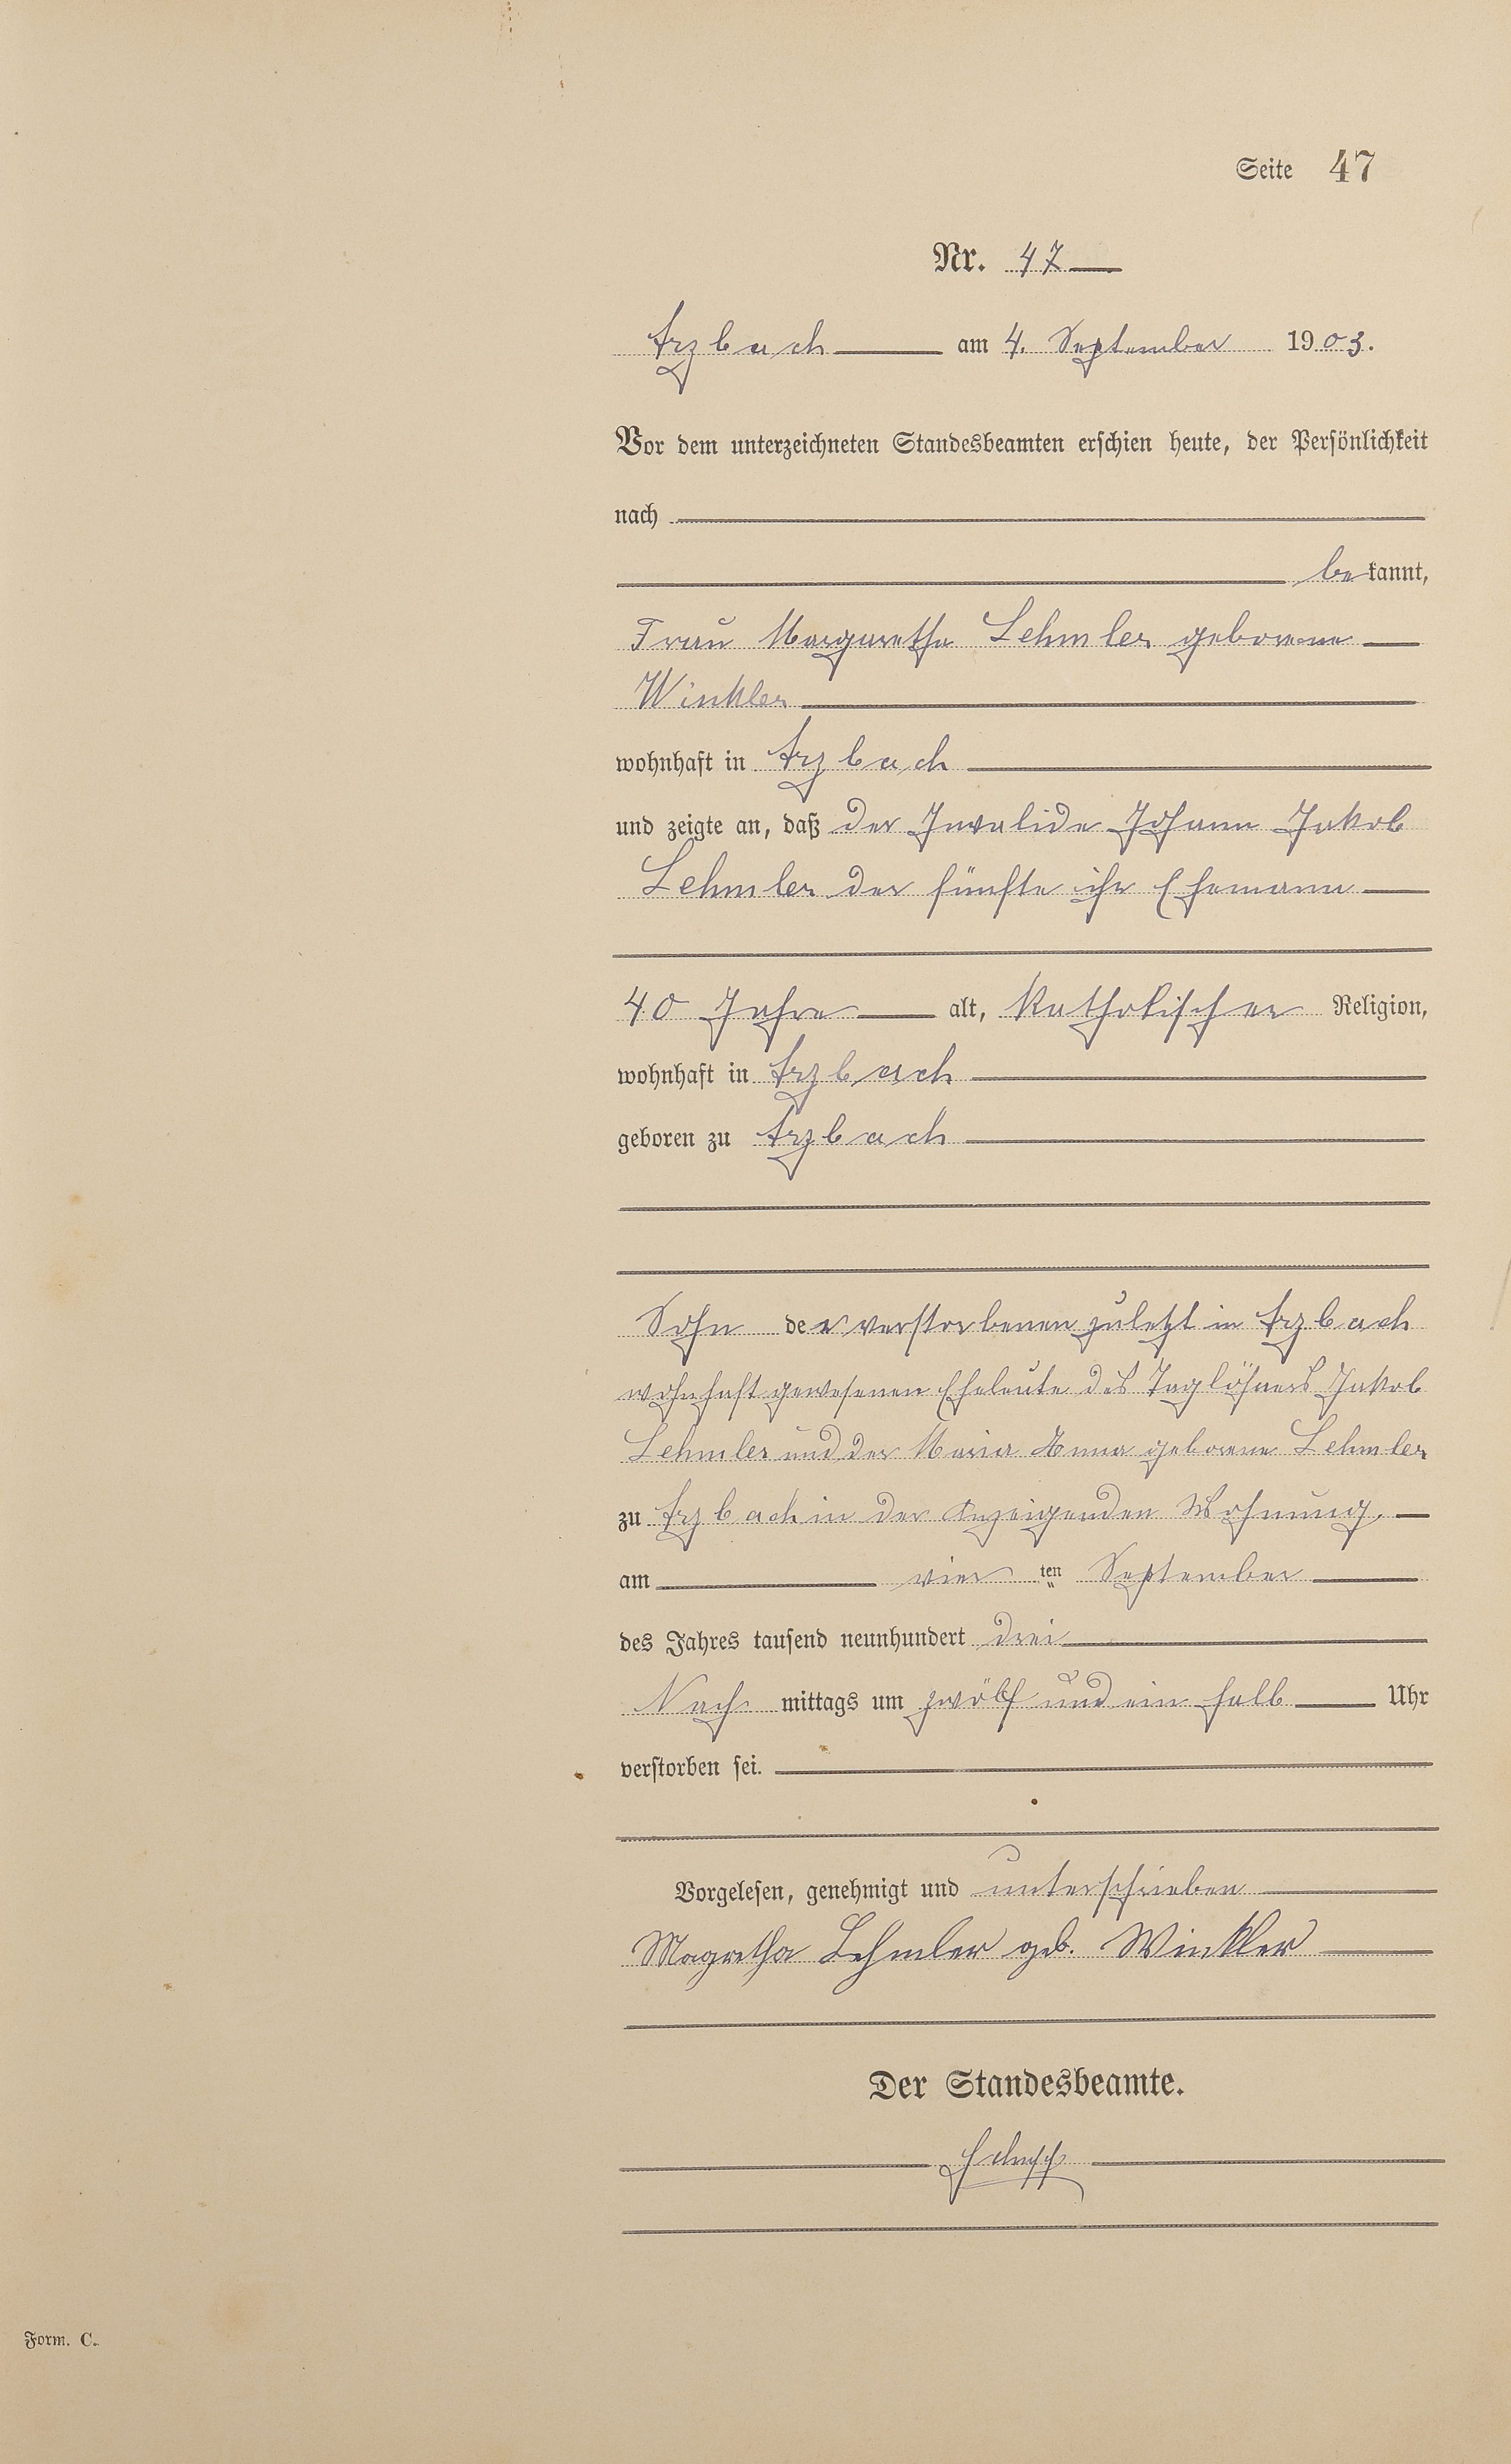 Seite 47
Nr. 47
Arzbach am 4. September 1903.
Vor dem unterzeichneten Standesbeamten erschien heute, der Persönlichkeit
nach
bekannt,
Frau Margaretha Lehmler geborene
Winkler
wohnhaft in Arzbach
und zeigte an, daß der Invalide Johann Jakob
Lehmler der fünfte ihr Ehemann
40 Jahre alt, katholischer Religion,
wohnhaft in Arzbach
geboren zu Arzbach
Sohn der verstorbenen zuletzt in Arzbach
wohnhaft gewesenen Eheleute des Taglöhners Jakob
Lehmler und der Maria Anna geborene Lehmler
zu Arzbach in der Anzeigenden Wohnung,
am vier ten September
des Jahres tausend neunhundert drei
Nach mittags um zwölf und ein halb Uhr
verstorben sei.
Vorgelesen, genehmigt und unterschrieben
Magretha Lehmler geb. Winkler
Der Standesbeamte.
Form. C.